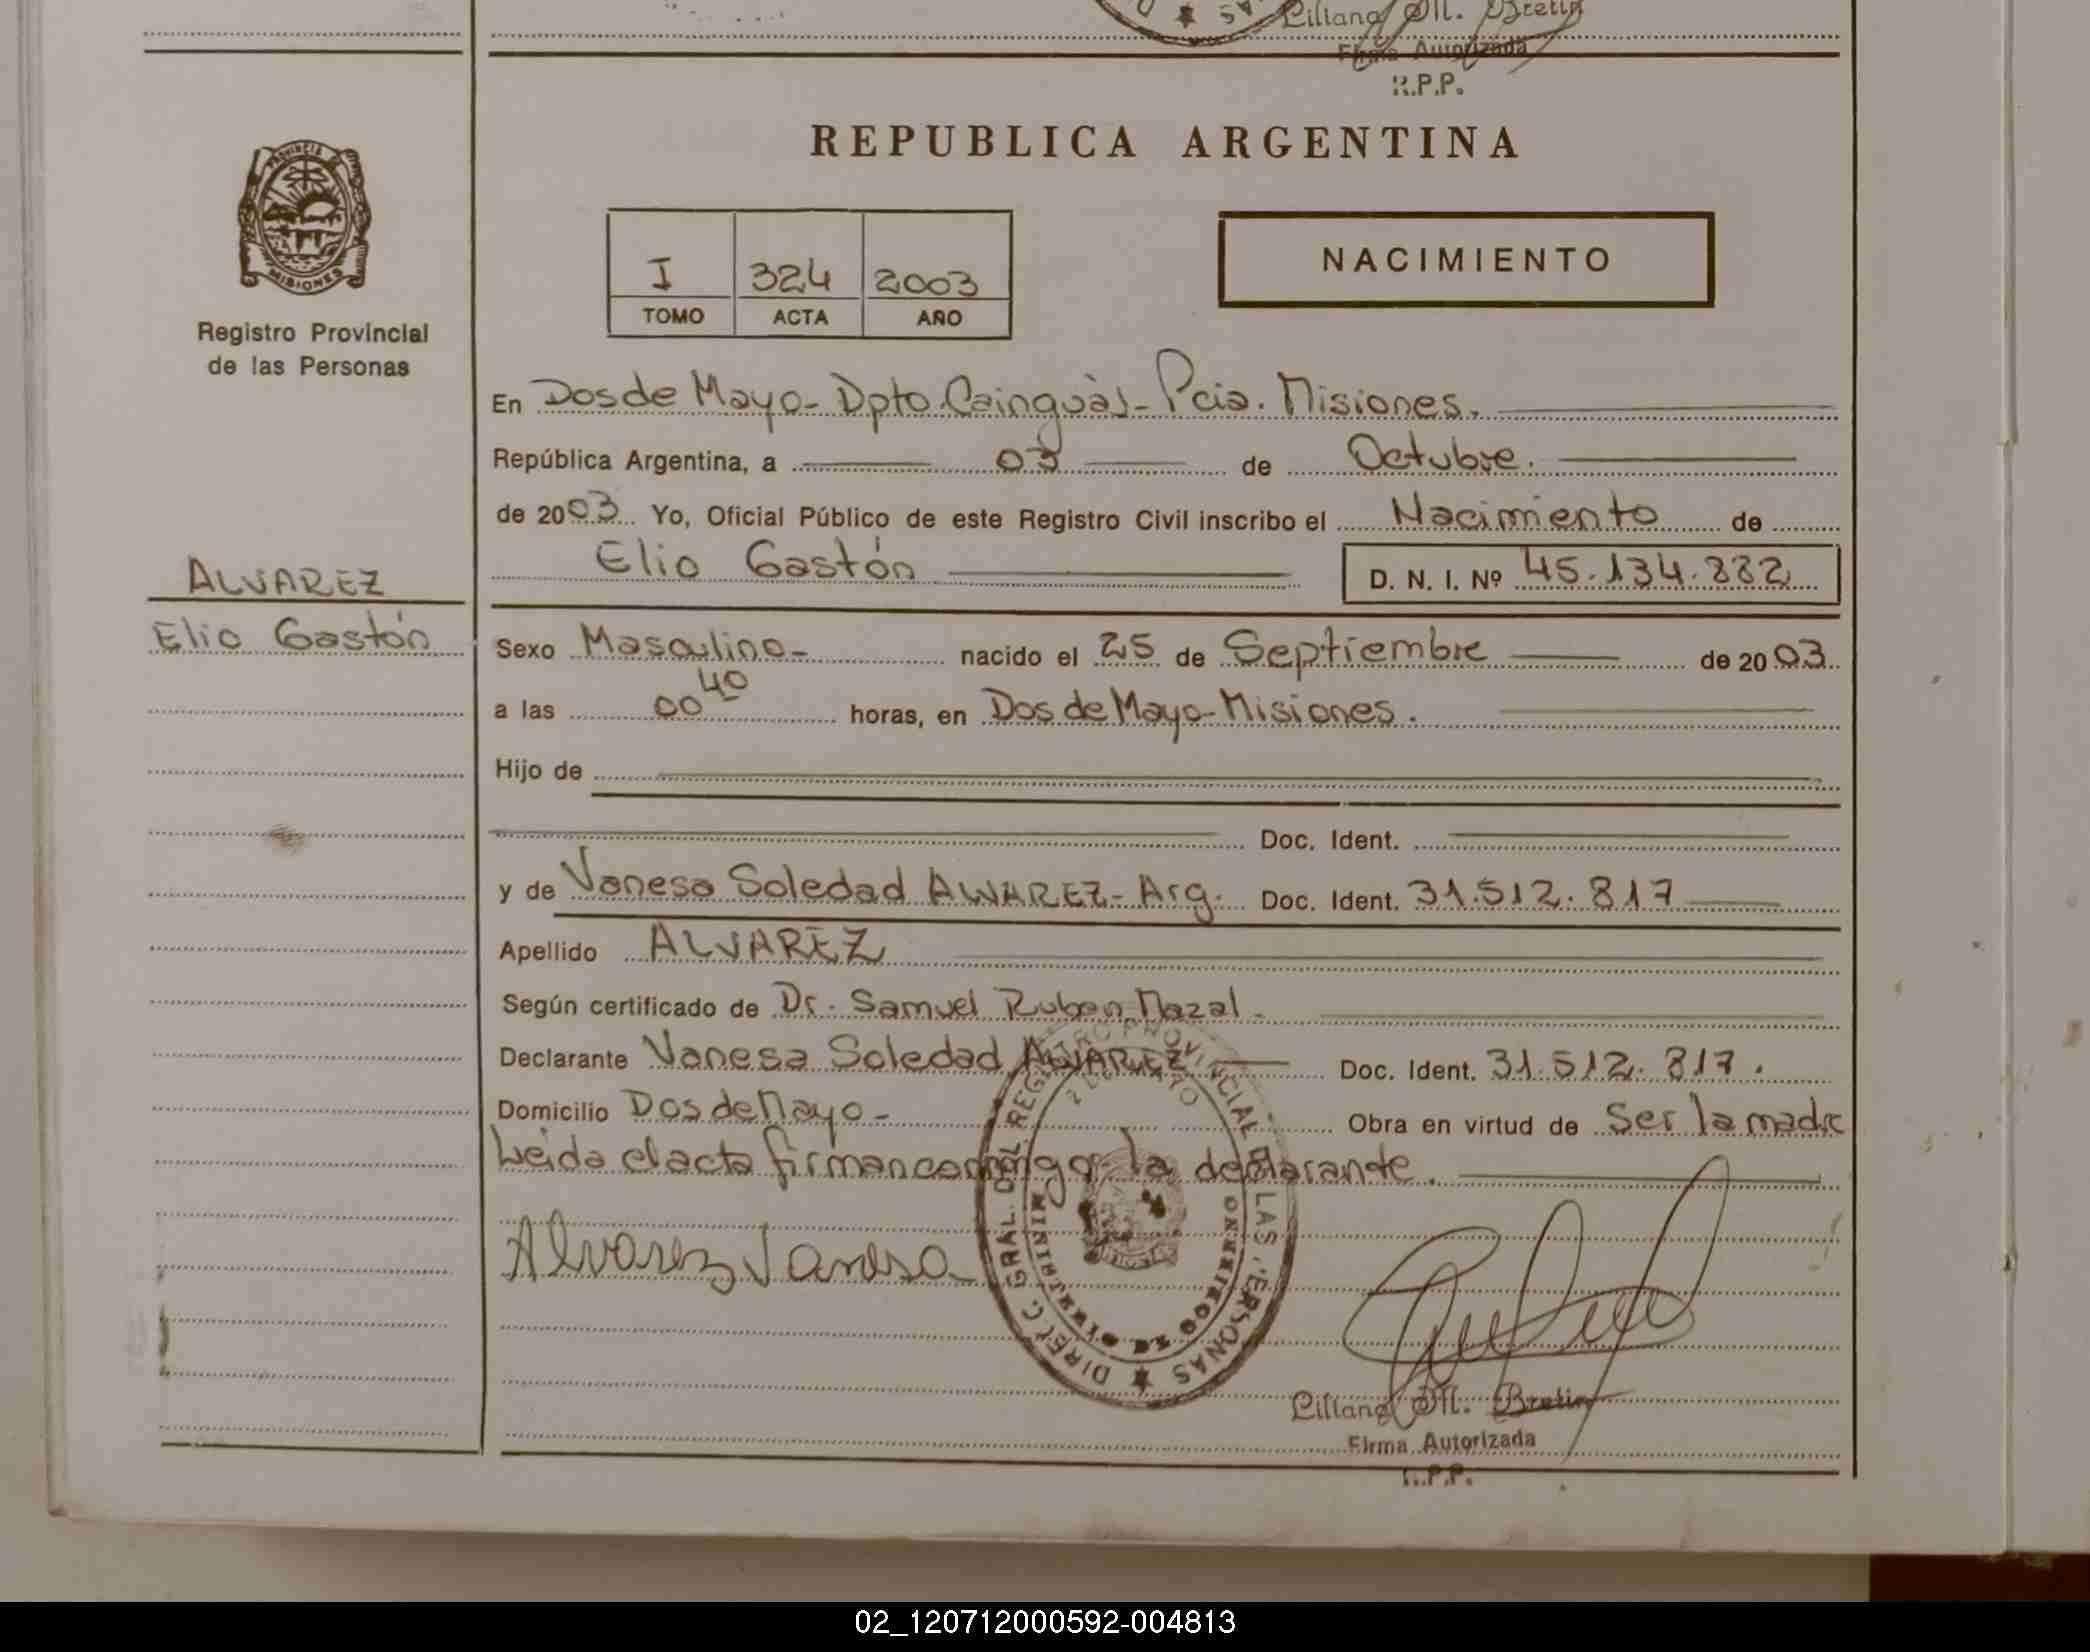 Liliana M. Bretin
Firma Autorizada
R.P.P.
PROVINCIA DE
MISIONES
Registro Provincial
de las Personas
REPUBLICA ARGENTINA
I 324 2003
TOMO ACTA AÑO
NACIMIENTO
En Dos de Mayo - Dpto. Cainguàs - Pcia. Misiones.
República Argentina, a 03 de Octubre.
de 2003 Yo, Oficial Público de este Registro Civil inscribo el Nacimiento de
Elio Gastón D. N. I. Nº 45.134.882
ALVAREZ
Elio Gastón
Sexo Masculino- nacido el 25 de Septiembre de 2003
a las 00 40 horas, en Dos de Mayo - Misiones.
Hijo de
Doc. Ident.
y de Vanesa Soledad ALVAREZ - Arg. Doc. Ident. 31.512.817
Apellido ALVAREZ
Según certificado de Dr. Samuel Ruben Nazal.
Declarante Vanesa Soledad ALVAREZ Doc. Ident. 31.512.817.
Domicilio Dos de Mayo - Obra en virtud de Ser la madre
Leida el acta firman conmigo la declarante.
Alvarez Vanesa
DIREC. GRAL. DEL REGISTRO PROVINCIAL DE LAS PERSONAS
MINISTERIO DE GOBIERNO
Liliana M. Bretin
Firma Autorizada
R.P.P.
02_120712000592-004813